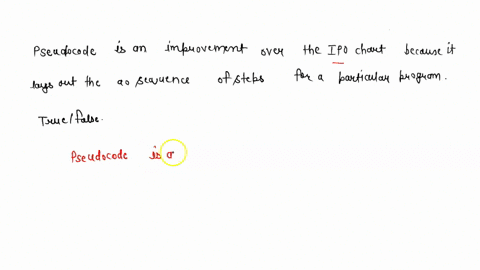 Pseudocode is an improvement over the IPO chart because it
lays out the ao sequence of steps for a particular program.
True/false.
Pseudocode is a